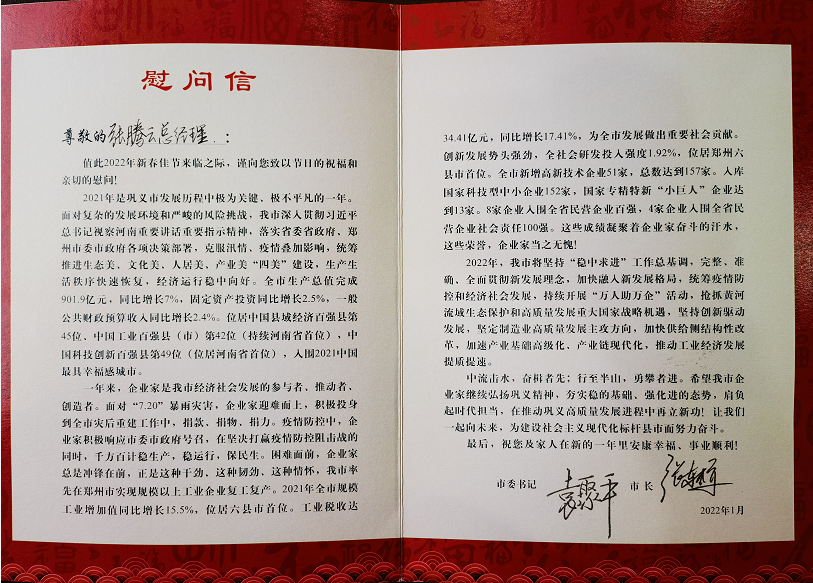 慰问信
尊敬的张腾云总经理：
值此2022年新春佳节来临之际，谨向您致以节日的祝福和
亲切的慰问!
2021年是巩义市发展历程中极为关键、极不平凡的一年。
面对复杂的发展环境和严峻的风险挑战，我市深入贯彻习近平
总书记视察河南重要讲话重要指示精神，落实省委省政府、郑
州市委市政府各项决策部署，克服汛情、疫情叠加影响，统筹
推进生态美、文化美、人居美、产业美“四美”建设，生产生
活秩序快速恢复，经济运行稳中向好。全市生产总值完成
901.9亿元，同比增长7%，固定资产投资同比增长2.5%，一般
公共财政预算收入同比增长2.4%。位居中国县域经济百强县第
45位、中国工业百强县（市）第42位（持续河南省首位），中
国科技创新百强县第49位（位居河南省首位），入围2021中国
最具幸福感城市。
一年来，企业家是我市经济社会发展的参与者、推动者、
创造者。面对“7.20”暴雨灾害，企业家迎难而上，积极投身
到全市灾后重建工作中，捐款、捐物、捐力。疫情防控中，企
业家积极响应市委市政府号召，在坚决打赢疫情防控阻击战的
同时，千方百计稳生产，稳运行，保民生。困难面前，企业家
总是冲锋在前，正是这种干劲、这种韧劲、这种情怀，我市率
先在郑州市实现规模以上工业企业复工复产。2021年全市规模
工业增加值同比增长15.5%，位居六县市首位。工业税收达
34.41亿元，同比增长17.41%，为全市发展做出重要社会贡献。
创新发展势头强劲，全社会研发投入强度1.92%，位居郑州六
县市首位。全市新增高新技术企业51家，总数达到157家。入库
国家科技型中小企业152家，国家专精特新“小巨人”企业达
到13家。8家企业入围全省民营企业百强，4家企业入围全省民
营企业社会责任100强。这些成绩凝聚着企业家奋斗的汗水，
这些荣誉，企业家当之无愧!
2022年，我市将坚持“稳中求进”工作总基调，完整、准
确、全面贯彻新发展理念，加快融入新发展格局，统筹疫情防
控和经济社会发展，持续开展“万人助万企”活动，抢抓黄河
流域生态保护和高质量发展重大国家战略机遇，坚持创新驱动
发展，坚定制造业高质量发展主攻方向，加快供给侧结构性改
革，加速产业基础高级化、产业链现代化，推动工业经济发展
提质提速。
中流击水，奋楫者先；行至半山，勇攀者进。希望我市企
业家继续弘扬巩义精神，夯实稳的基础、强化进的态势，肩负
起时代担当，在推动巩义高质量发展进程中再立新功! 让我们
一起向未来，为建设社会主义现代化标杆县市而努力奋斗。
最后，祝您及家人在新的一年里安康幸福、事业顺利!
市委书记 袁聚平 市长
2022年1月